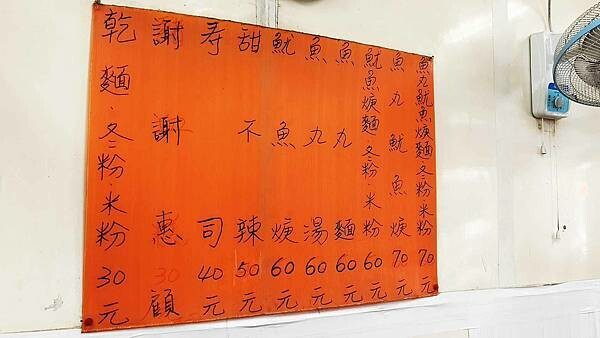 魚丸魷魚焿麵·冬粉·米粉70元
魚丸魷魚焿70元
魷魚焿麵·冬粉·米粉60元
魚丸麵60元
魚丸湯60元
魷魚焿60元
甜不辣50元
寿司40元
謝謝惠顧
乾麵·冬粉·米粉30元